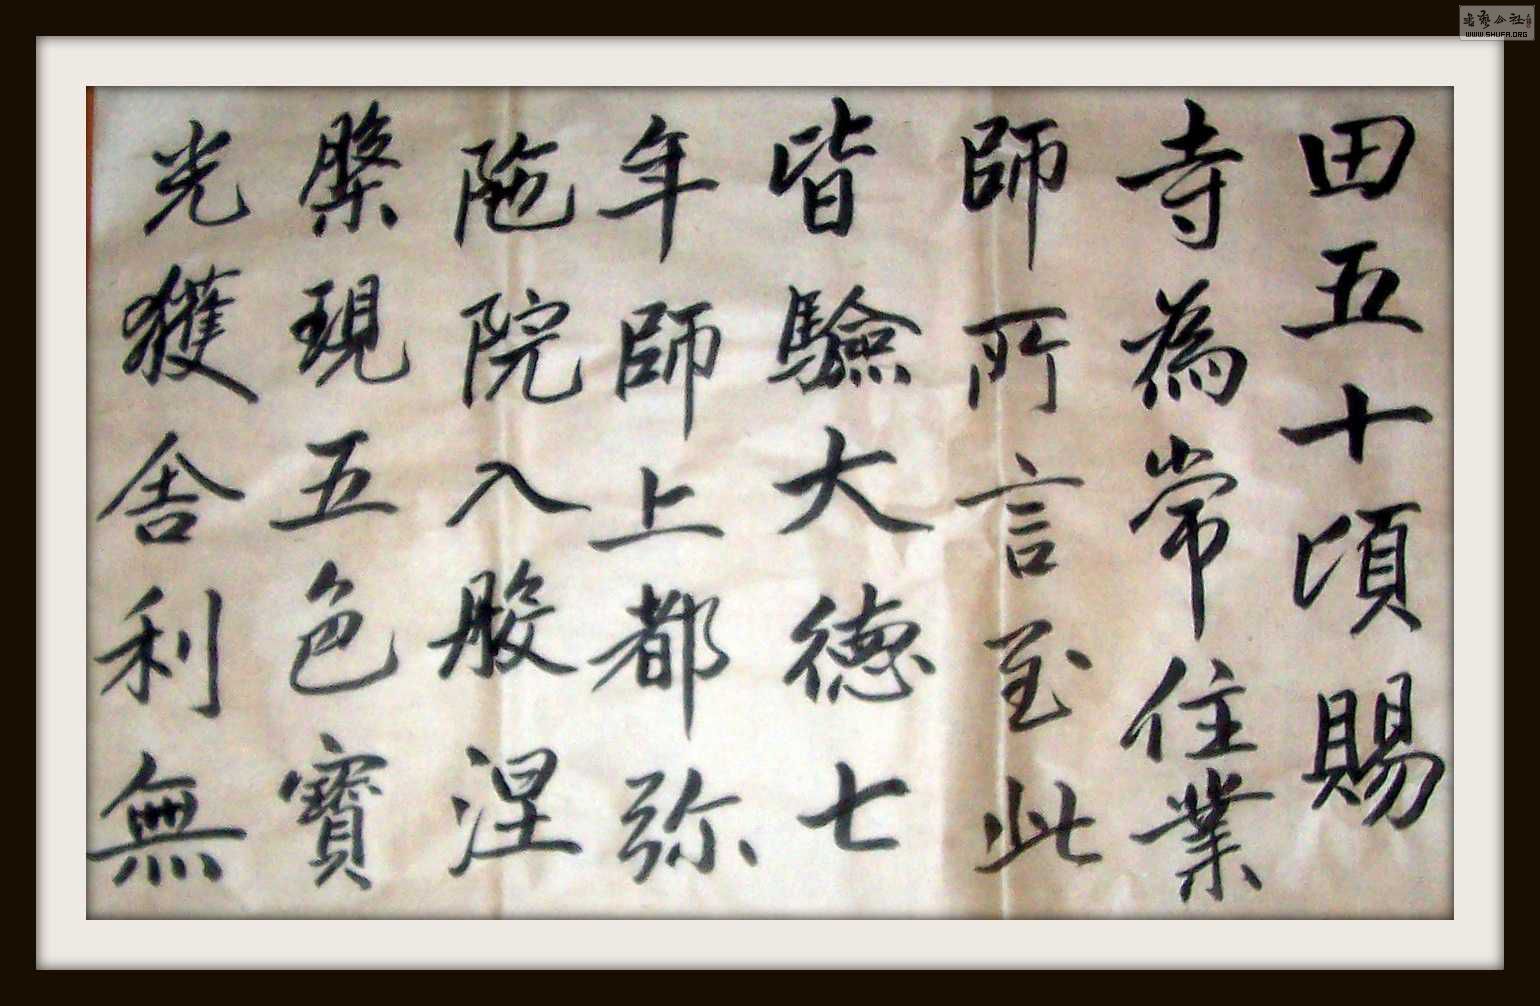 田五十頃賜
寺為常住業
師所言至此
皆驗大德七
年師上都弥
陁院入般涅
槃現五色寶
光獲舍利無
书艺公社
WWW.SHUFA.ORG